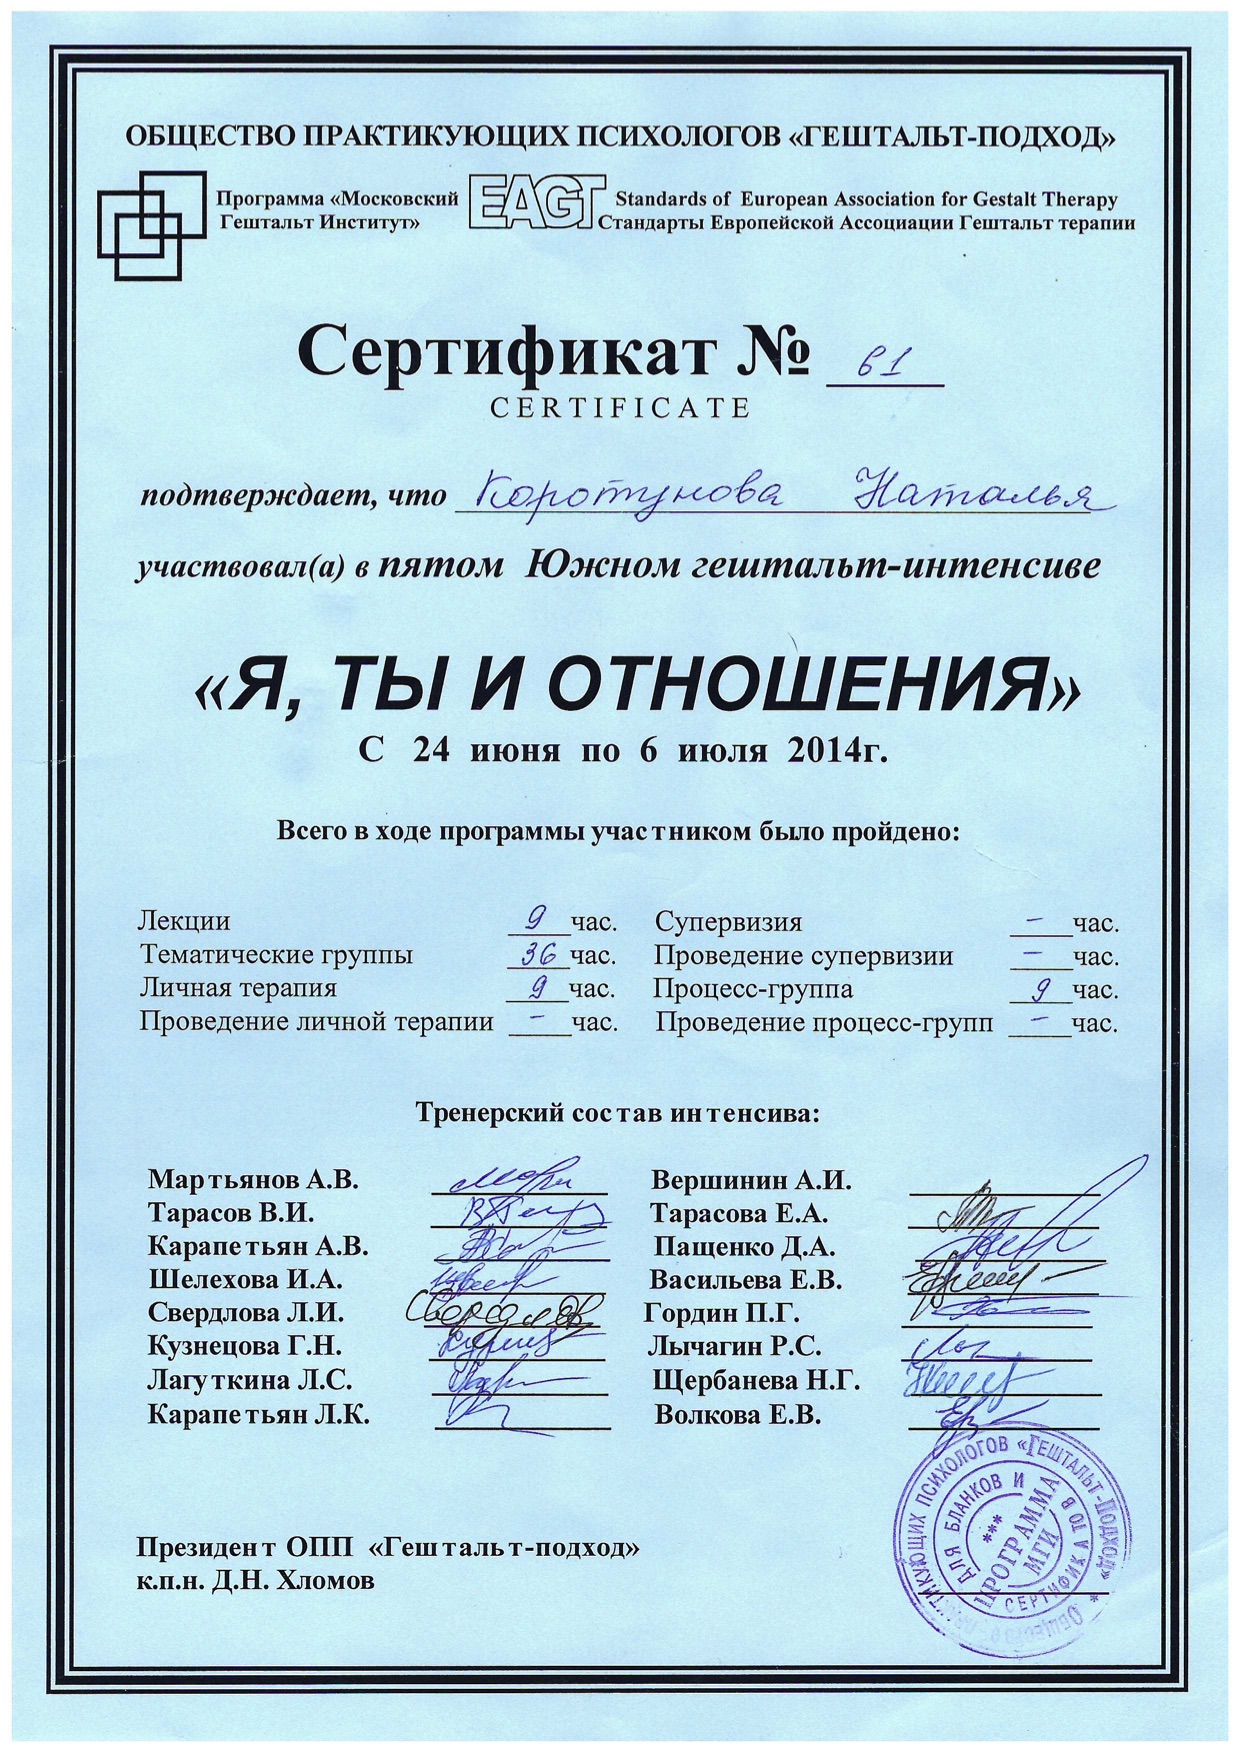 ОБЩЕСТВО ПРАКТИКУЮЩИХ ПСИХОЛОГОВ «ГЕШТАЛЬТ-ПОДХОД»
Программа «Московский Гештальт Институт»
EAGT
Standards of European Association for Gestalt Therapy
Стандарты Европейской Ассоциации Гештальт терапии
Сертификат № 61
CERTIFICATE
подтверждает, что Коротунова Наталья
участвовал(а) в пятом Южном гештальт-интенсиве
«Я, ТЫ И ОТНОШЕНИЯ»
С 24 июня по 6 июля 2014г.
Всего в ходе программы участником было пройдено:
Лекции 9 час. Супервизия – час.
Тематические группы 36 час. Проведение супервизии – час.
Личная терапия 9 час. Процесс-группа 9 час.
Проведение личной терапии – час. Проведение процесс-групп – час.
Тренерский состав интенсива:
Мартьянов А.В. Вершинин А.И.
Тарасов В.И. Тарасова Е.А.
Карапетьян А.В. Пащенко Д.А.
Шелехова И.А. Васильева Е.В.
Свердлова Л.И. Гордин П.Г.
Кузнецова Г.Н. Лычагин Р.С.
Лагуткина Л.С. Щербанева Н.Г.
Карапетьян Л.К. Волкова Е.В.
Президент ОПП «Гештальт-подход»
к.п.н. Д.Н. Хломов
ПСИХОЛОГОВ «ГЕШТАЛЬТ-ПОДХОД» * ОБЩЕСТВО
ДЛЯ БЛАНКОВ И СЕРТИФИКАТОВ
***
ПРОГРАММА
МГИ